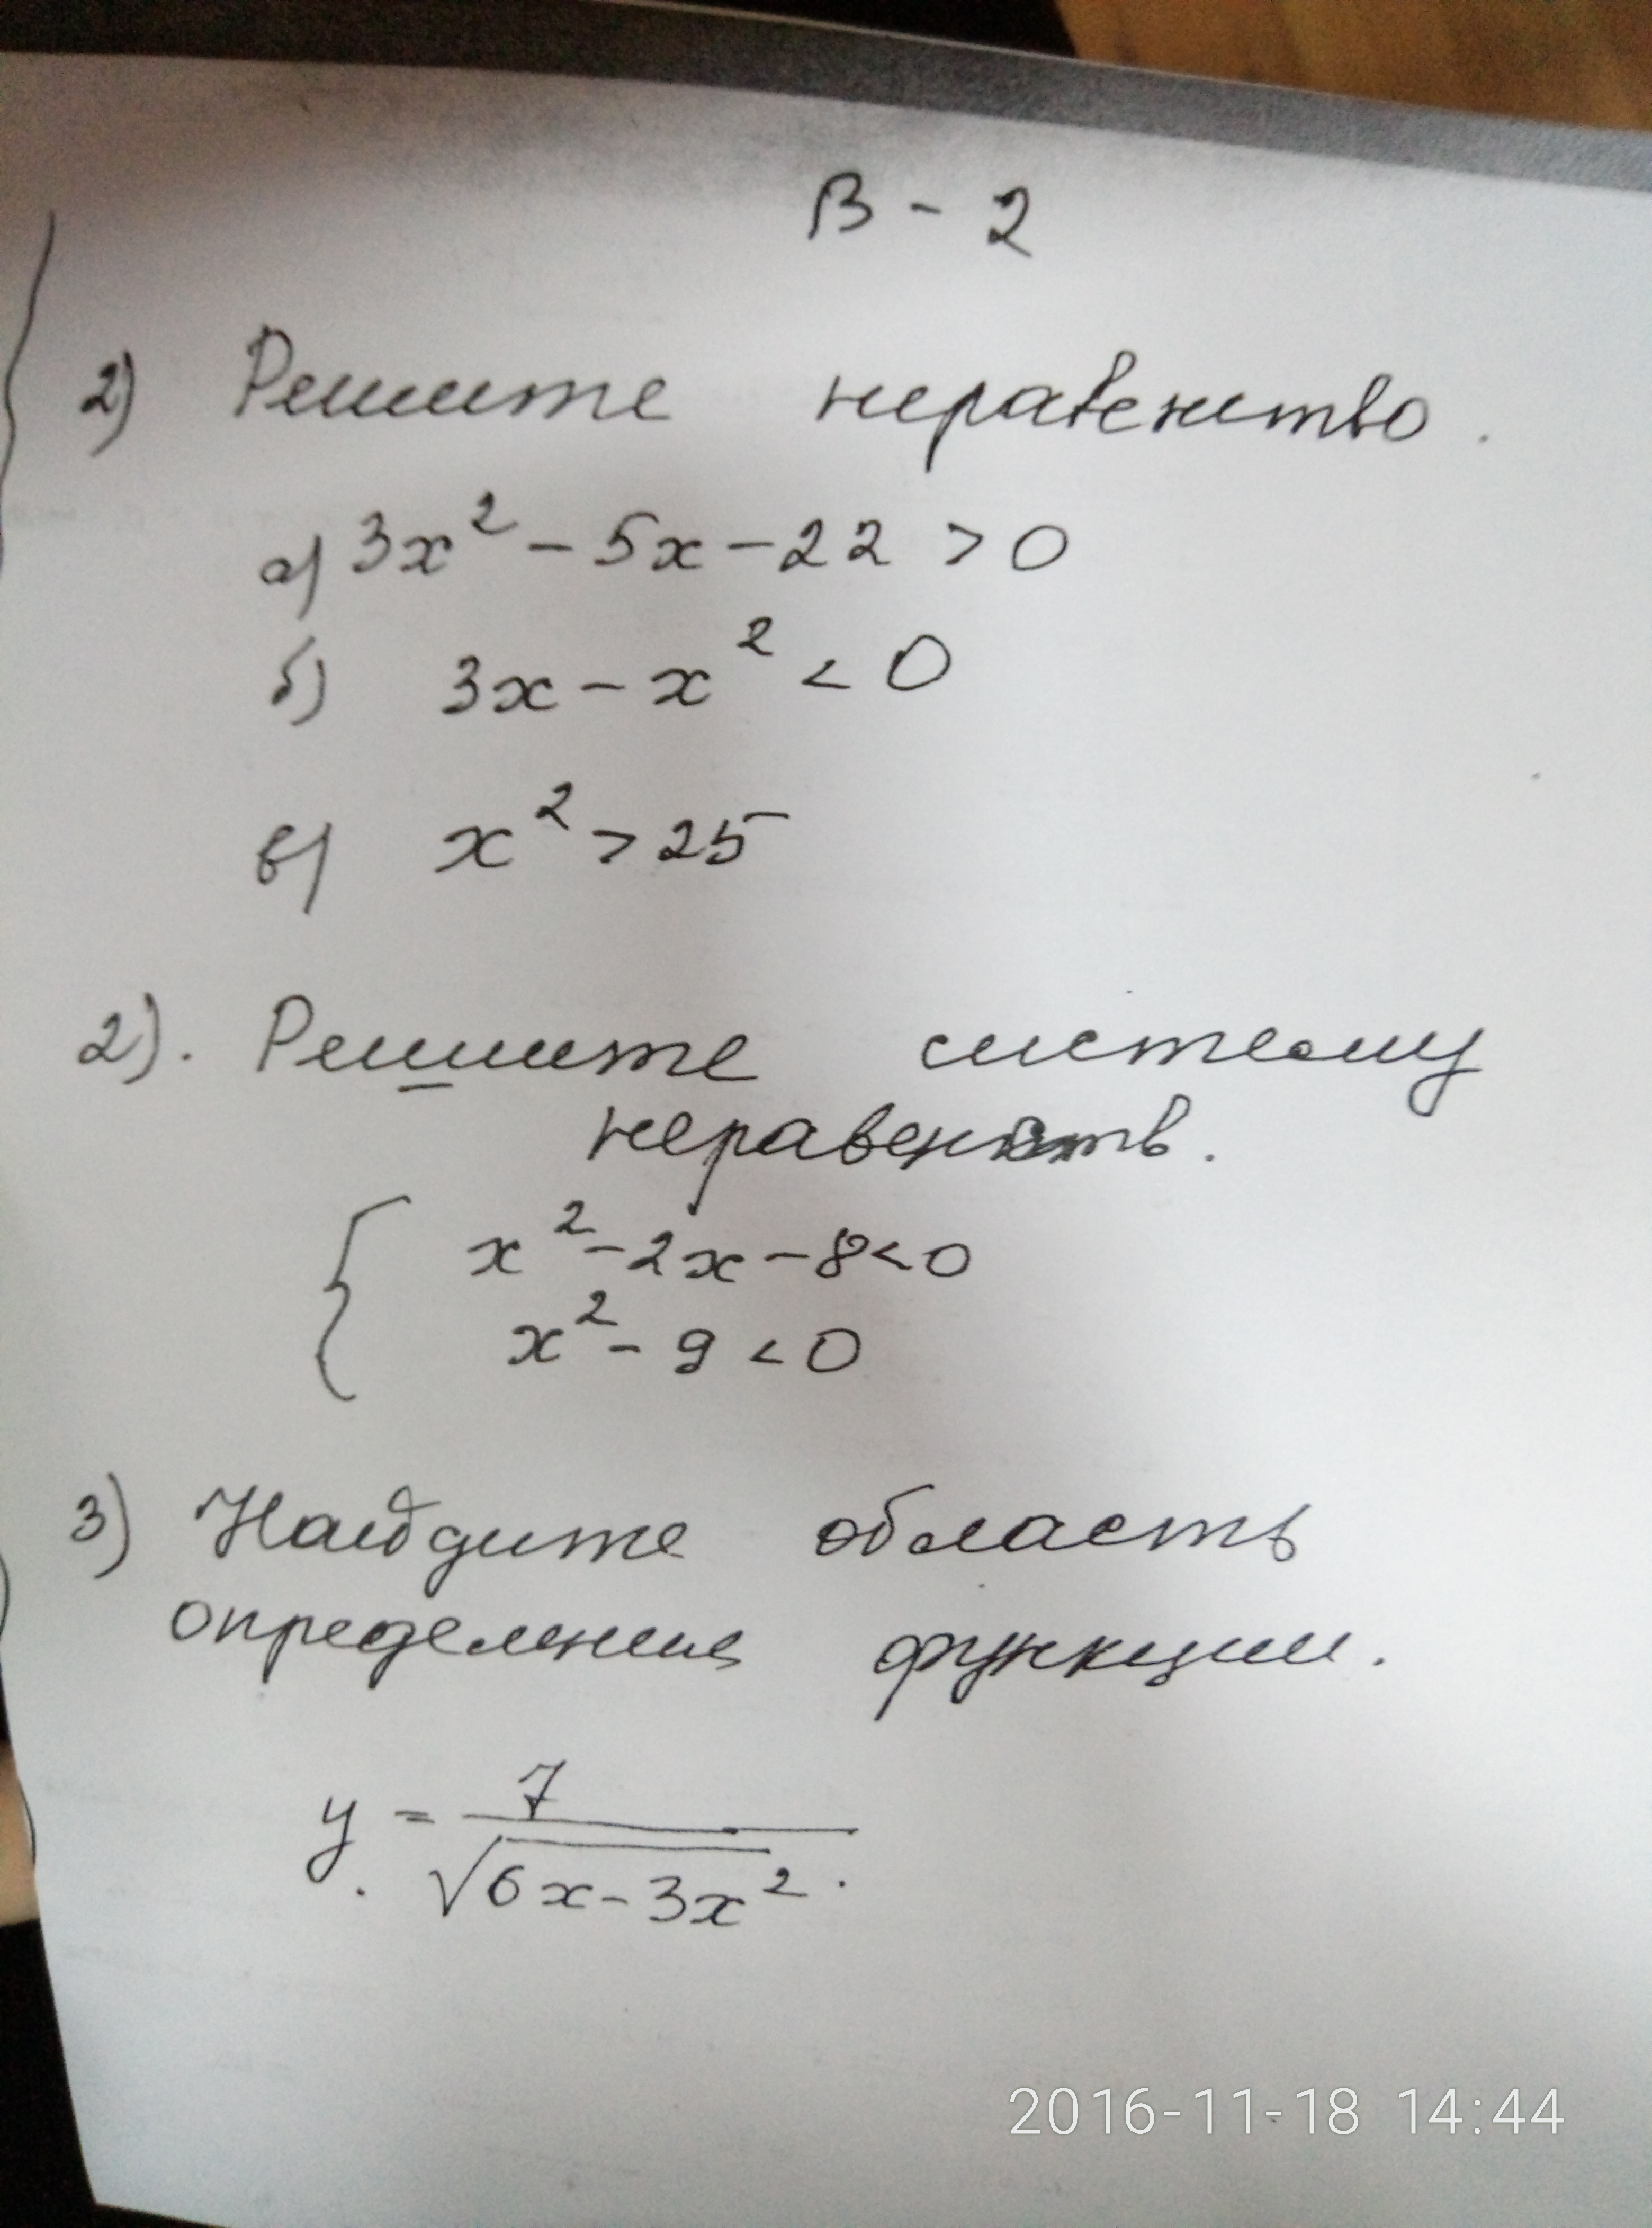 В - 2
2) Решите неравенство.
а) 3x² - 5x - 22 > 0
б) 3x - x² < 0
в) x² > 25
2). Решите систему
неравенств.
{ x² - 2x - 8 < 0
x² - 9 < 0
3) Найдите область
определения функции.
y = 7 / √(6x - 3x²).
2016-11-18 14:44